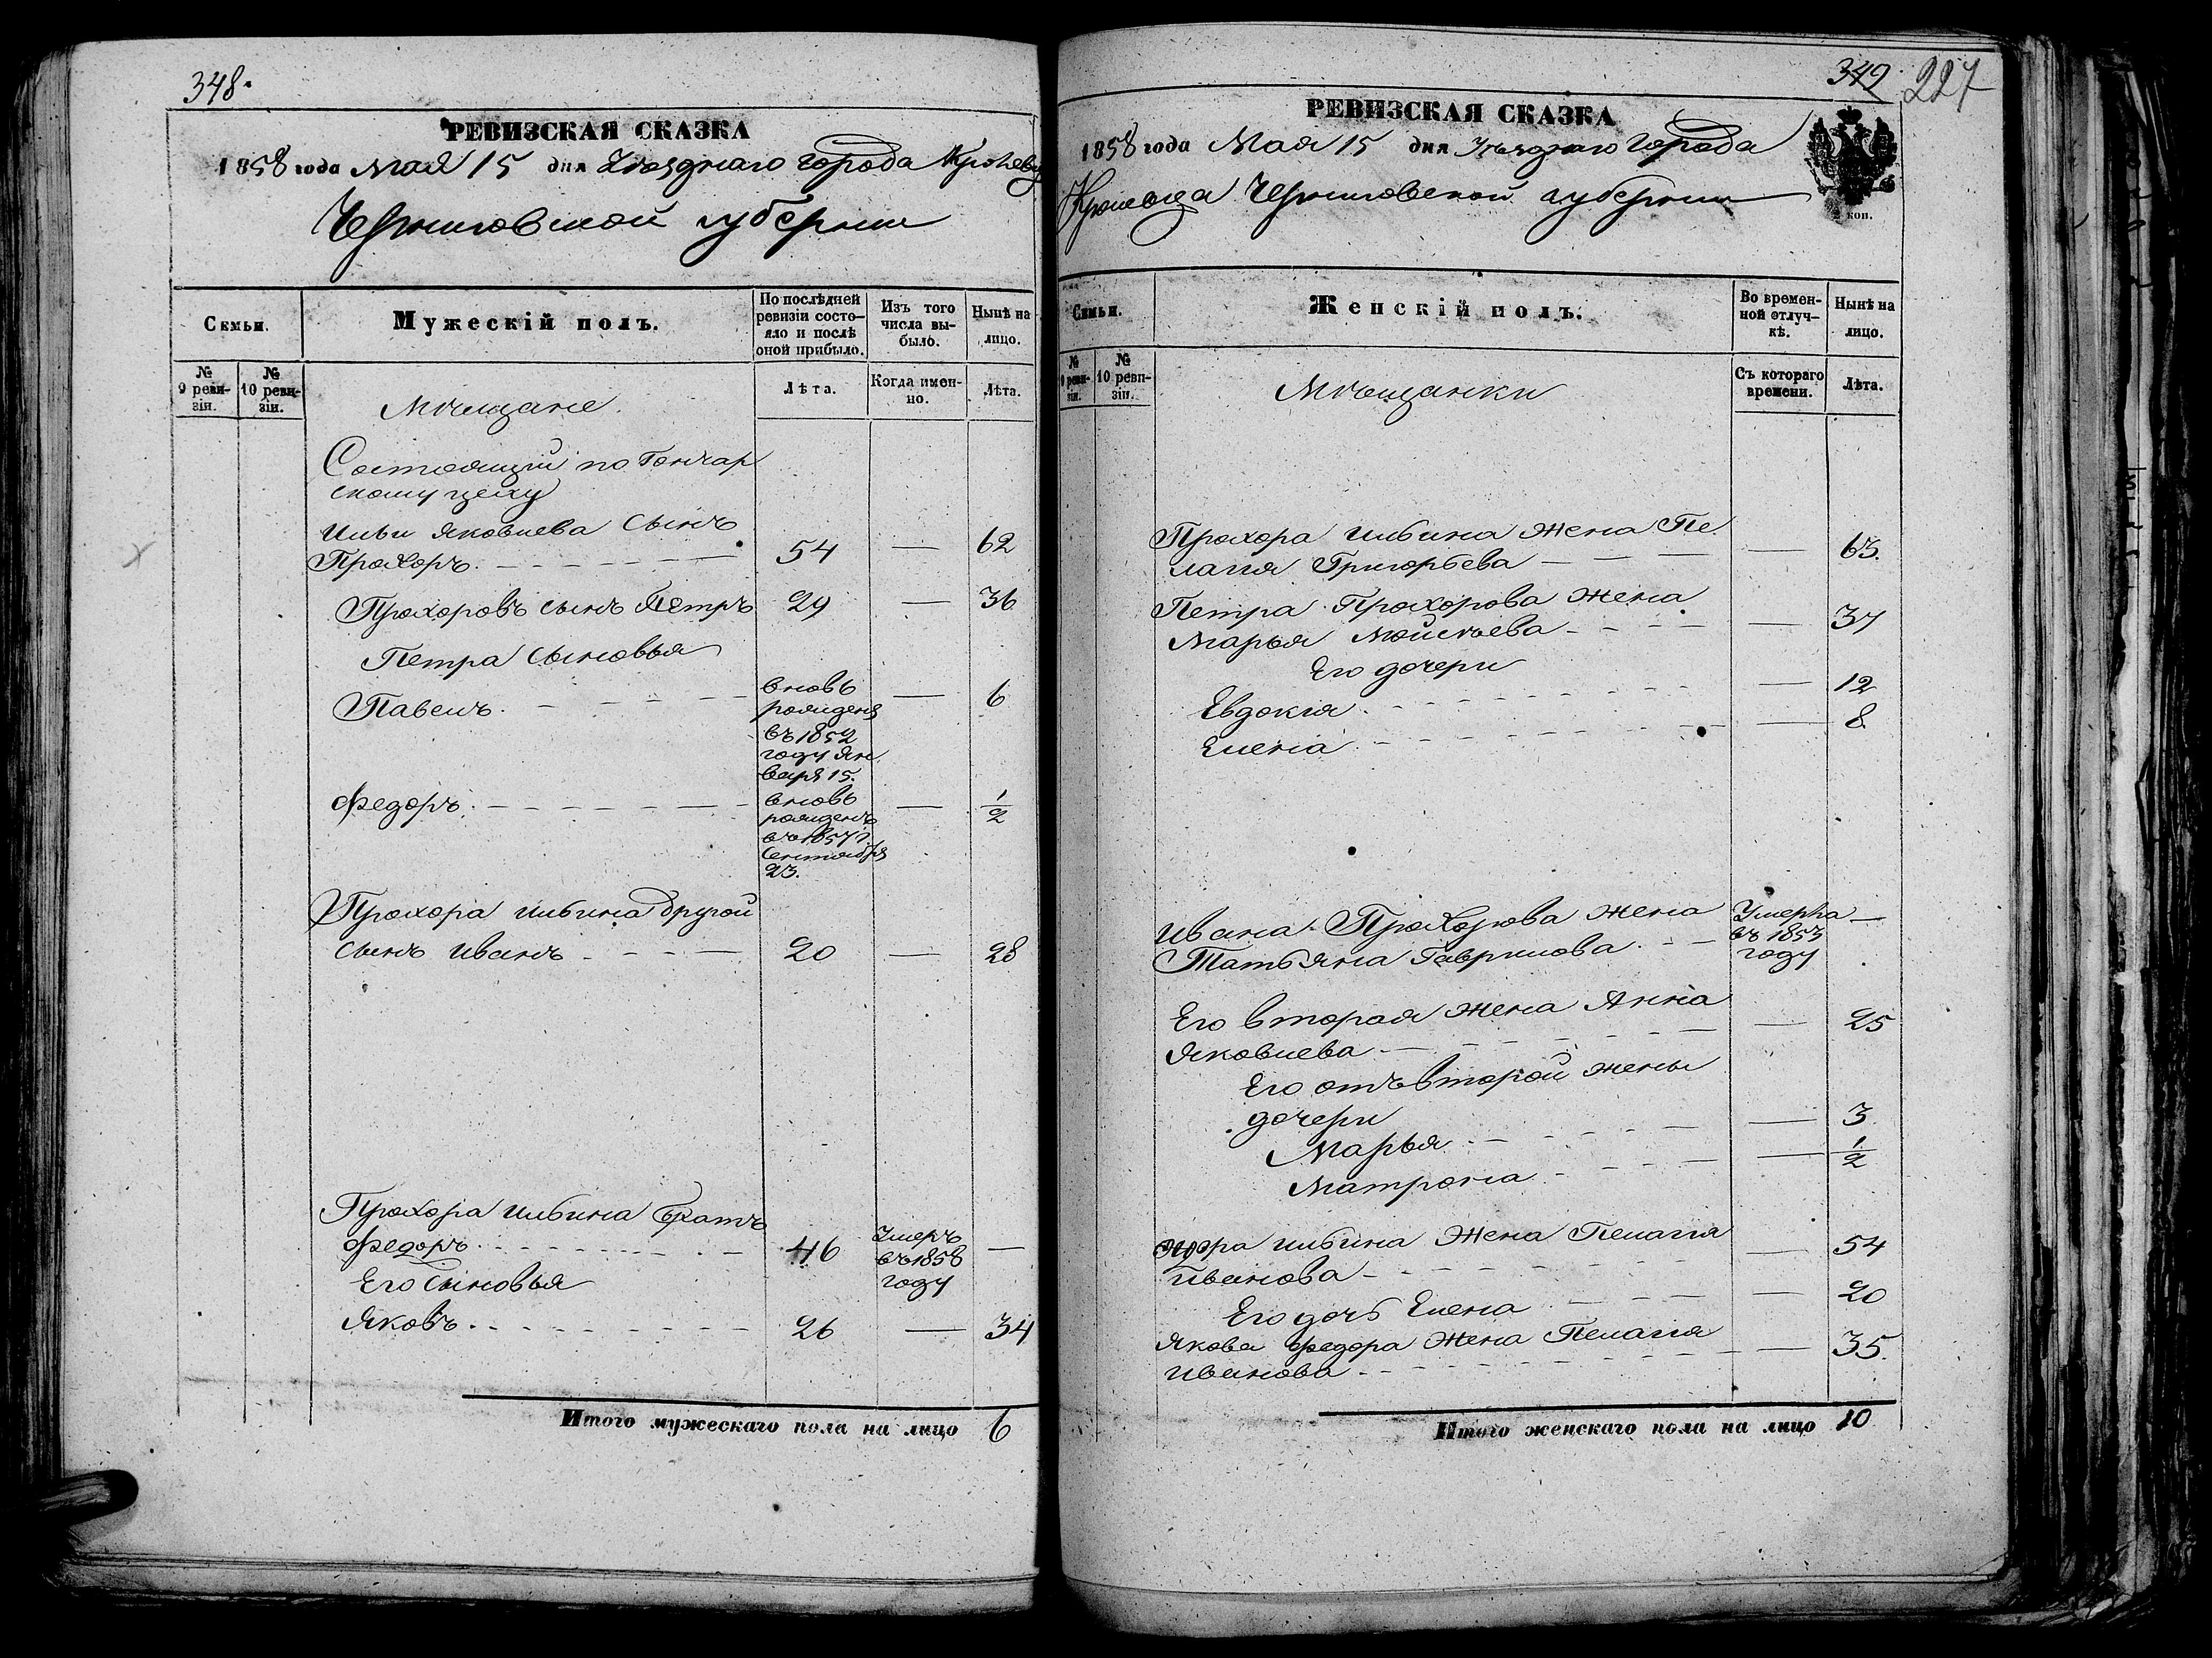 348.
РЕВИЗСКАЯ СКАЗКА
1858 года Мая 15 дня Уѣзднаго города Кролевца
Черниговской губерніи
Семьи.
Мужескій полъ.
По послѣдней ревизіи состо-
яло и послѣ
оной прибыло.
Изъ того
числа вы-
было.
Нынѣ на
лицо.
№
9 реви-
зіи.
№
10 реви-
зіи.
Лѣта.
Когда имен-
но.
Лѣта.
Мѣщане.
Состоящіи по Гончар
скому цеху
Ильи Яковлева сынъ
Прохоръ. 54 — 62
Прохоровъ сынъ Петръ 29 — 36
Петра сыновья
Павелъ. вновь — 6
рожденъ
въ 1852
году Ян
варя 15.
Федоръ. вновь — 1/2
рожденъ
въ 1857 г.
Сентября
23.
Прохора Ильина другой
сынъ Иванъ 20 — 28
Прохора Ильина братъ
Федоръ 46 Умеръ —
въ 1858
году
Его сыновья
Яковъ. 26 — 34
Итого мужескаго пола на лицо 6
349 227
РЕВИЗСКАЯ СКАЗКА
1858 года Мая 15 дня Уѣзднаго города
Кролевца Черниговской губерніи
коп.
Семьи.
Женскій полъ.
Во времен-
ной отлуч-
кѣ.
Нынѣ на
лицо.
№
9 реви-
зіи.
№
10 реви-
зіи.
Съ котораго
времени.
Лѣта.
Мѣщанки
Прохора Ильина жена Пе
лагія Григорьева — 63.
Петра Прохорова жена
Марья Моисѣева — 37
Его дочери
Евдокія — 12
Елена — 8
Ивана Прохорова жена Умерла —
Татьяна Гаврилова въ 1853
году
Его вторая жена Анна
Яковлева — 25
Его отъ второй жены
дочери
Марья — 3
Матрона — 1/2
Федора Ильина жена Пелагія
Иванова — 54
Его дочь Елена — 20
Якова Федора жена Пелагія
Иванова — 35.
Итого женскаго пола на лицо 10